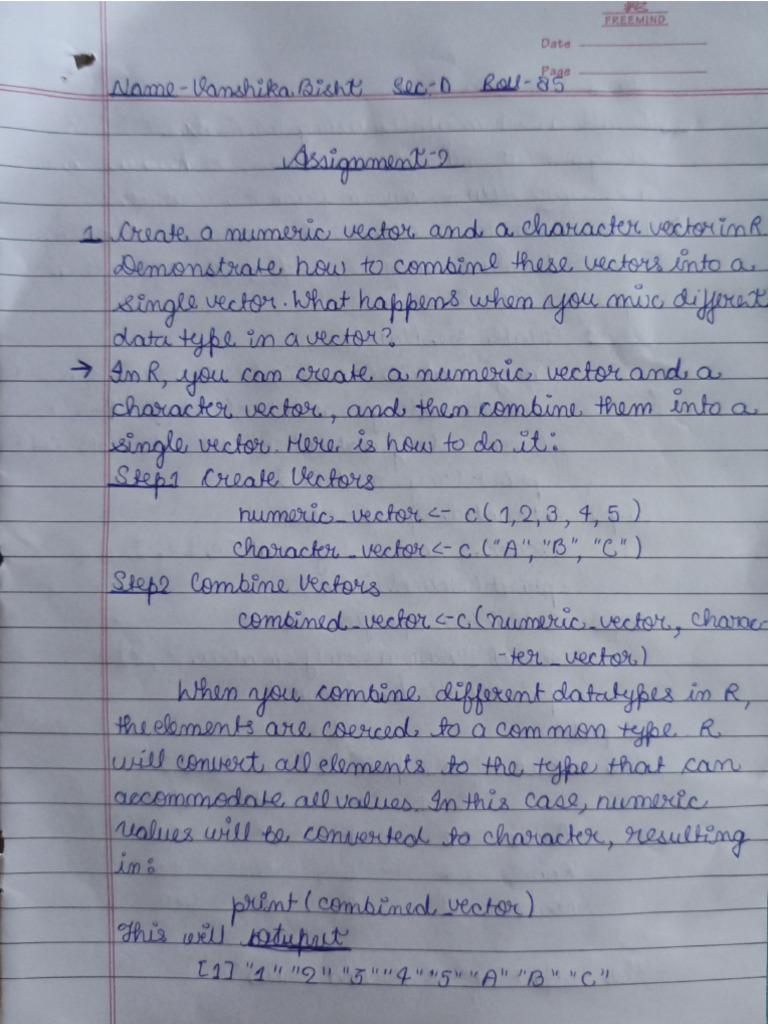 FREEMIND
Date
Page
Name-Vanshika.Bisht Sec-D Roll-85
Assignment-2
1 Create a numeric vector and a character vector in R
Demonstrate how to combine these vectors into a
single vector. What happens when you mix different
data type in a vector?
→ In R, you can create a numeric vector and a
character vector, and then combine them into a
single vector. Here is how to do it:
Step1 Create Vectors
numeric_vector <- c(1,2,3, 4, 5)
character_vector <- c("A", "B", "C")
Step2 Combine Vectors
combined_vector <-c(numeric_vector, charac-
-ter_vector)
When you combine different datatypes in R,
the elements are coerced to a common type. R
will convert all elements to the type that can
accommodate all values. In this case, numeric
values will be converted to character, resulting
in:
print(combined_vector)
This will output
[1] "1" "2" "3" "4" "5" "A" "B" "C"